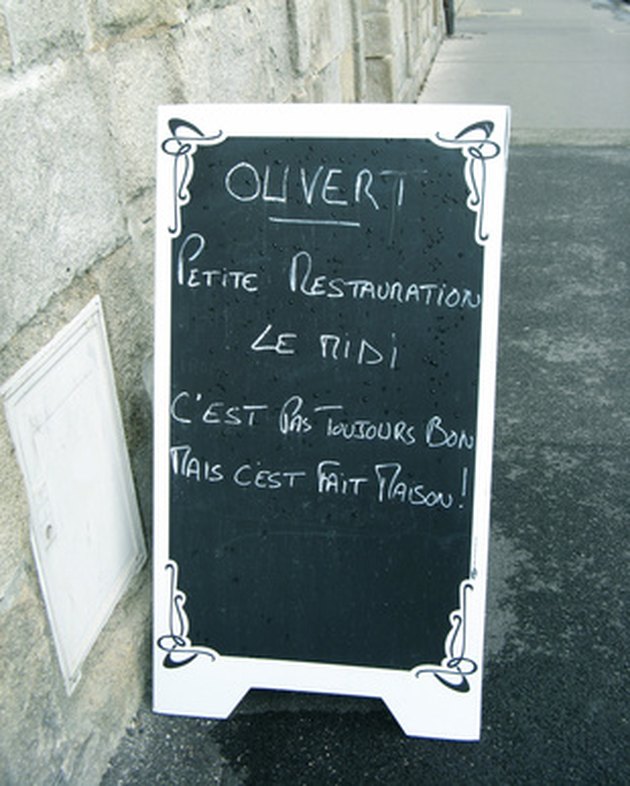 OUVERT
PETITE RESTAURATION
LE MIDI
C'EST PAS TOUJOURS BON
MAIS C'EST FAIT MAISON !